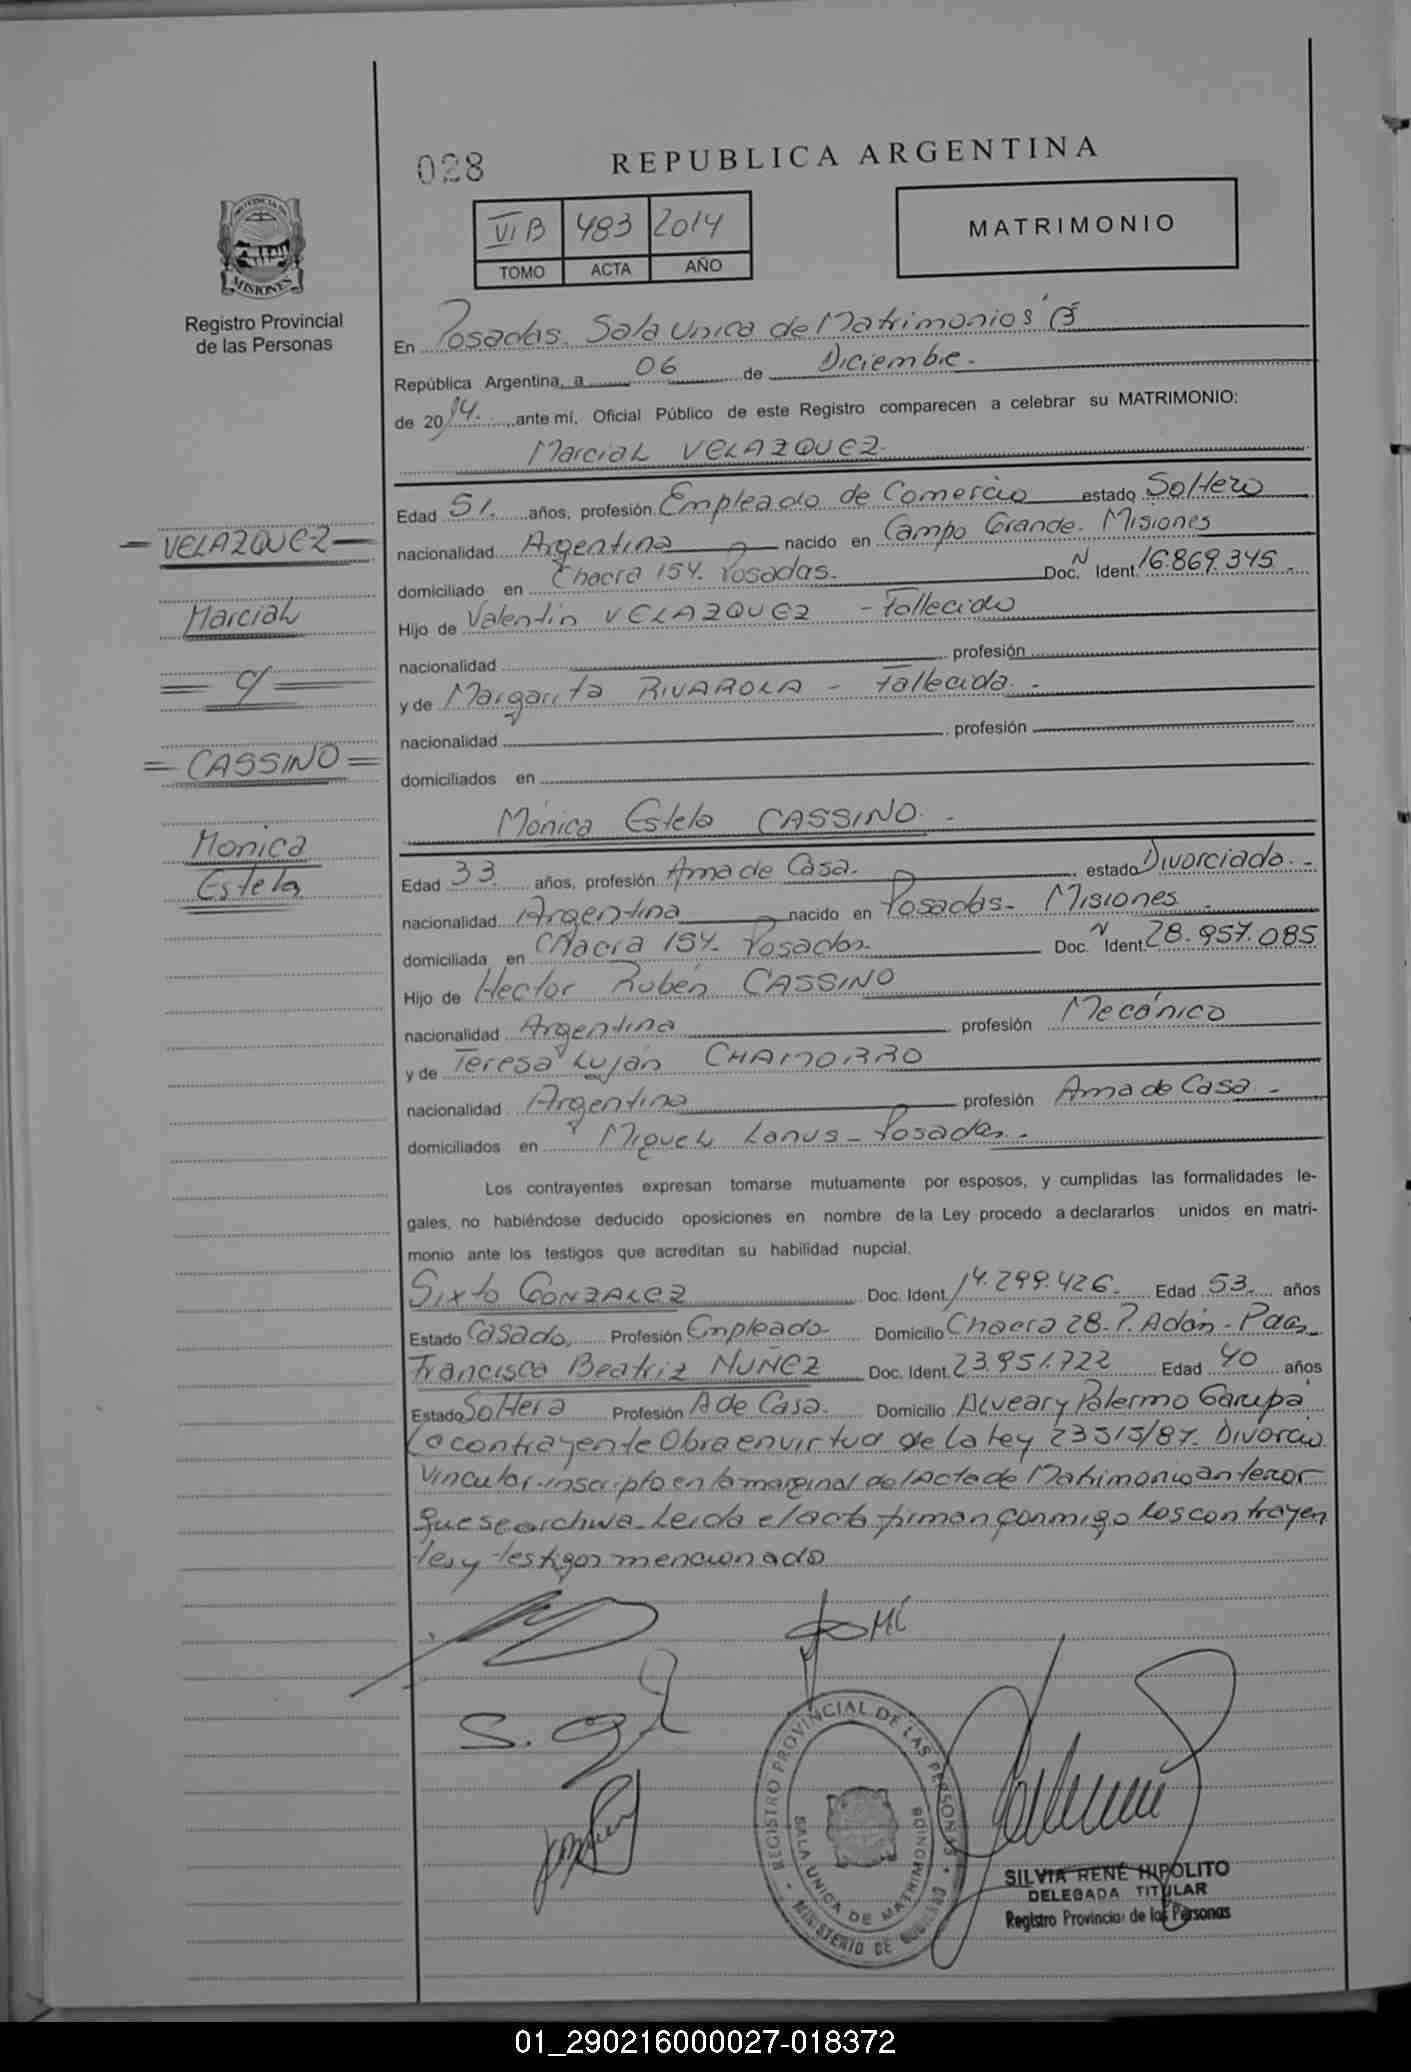 028
REPUBLICA ARGENTINA
VI B 483 2014
TOMO ACTA AÑO
MATRIMONIO
PROVINCIA DE
MISIONES
Registro Provincial
de las Personas
En Posadas. Sala Unica de Matrimonios "B"
República Argentina, a 06 de Diciembre.-
de 2014. ante mí, Oficial Público de este Registro comparecen a celebrar su MATRIMONIO:
Marcial VELAZQUEZ.
Edad 51. años, profesión Empleado de Comercio estado Soltero
nacionalidad Argentina nacido en Campo Grande. Misiones
domiciliado en Chacra 154. Posadas. Doc. N Ident. 16.869.345.
Hijo de Valentin VELAZQUEZ - Fallecido
nacionalidad profesión
y de Margarita RIVAROLA - Fallecida.-
nacionalidad profesión
domiciliados en
Mónica Estela CASSINO.-
Edad 33 años, profesión Ama de Casa. estado Divorciada.-
nacionalidad Argentina nacido en Posadas- Misiones
domiciliada en Chacra 154. Posadas. Doc. N Ident. 28.957.085
Hijo de Hector Rubén CASSINO
nacionalidad Argentina profesión Mecánico
y de Teresa Luján CHAMORRO
nacionalidad Argentina profesión Ama de Casa.-
domiciliados en Miguel Lanus - Posadas.-
VELAZQUEZ
Marcial
c/
CASSINO
Monica
Estela
Los contrayentes expresan tomarse mutuamente por esposos, y cumplidas las formalidades le-
gales, no habiéndose deducido oposiciones en nombre de la Ley procedo a declararlos unidos en matri-
monio ante los testigos que acreditan su habilidad nupcial.
Sixto GONZALEZ Doc. Ident. 14.299.426 Edad 53 años
Estado Casado, Profesión Empleado Domicilio Chacra 28. P. Adán - Pdas.
Francisca Beatriz NUÑEZ Doc. Ident. 23.951.722 Edad 40 años
Estado Soltera Profesión A de Casa. Domicilio Alvear y Palermo Garupá
La contrayente Obra en virtud de la Ley 23515/87. Divorcio
Vincular inscripto en la marginal del Acta de Matrimonio anterior
que se archiva. Leida el acta firman conmigo los contrayen
tes y testigos mencionado
S. G
REGISTRO PROVINCIAL DE LAS PERSONAS
SALA UNICA DE MATRIMONIOS
MINISTERIO DE GOBIERNO
SILVIA RENÉ HIPÓLITO
DELEGADA TITULAR
Registro Provincial de las Personas
01_290216000027-018372